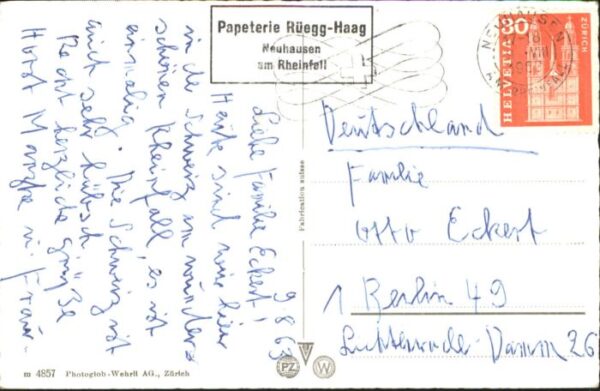 Papeterie Rüegg-Haag
Neuhausen
am Rheinfall
NEUHAUSEN
30
HELVETIA
ZÜRICH
9.8.63
Liebe Familie Eckert!
Heute sind wir hier
in der Schweiz am wunder-
schönen Rheinfall, es ist
einmalig. Die Schweiz ist
auch sehr hübsch
Recht herzliche Grüße
Horst u. Frau
Deutschland
Familie
Otto Eckert
1 Berlin 49
Lichtenrade-Damm 26
Fabrication suisse
PZ W
m 4857 Photoglob-Wehrli AG., Zürich